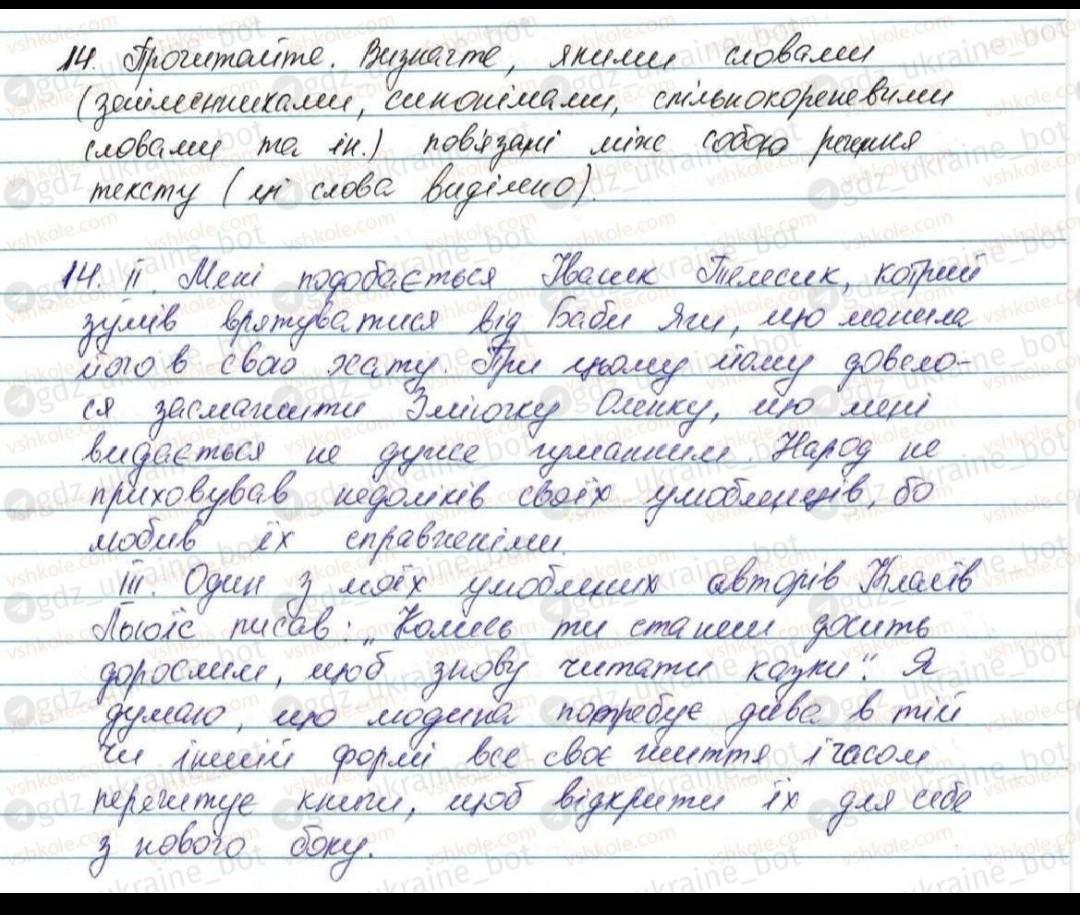 14. Прочитайте. Визначте, якими словами
(займенниками, синонімами, спільнокореневими
словами та ін.) пов'язані між собою речення
тексту (ці слова виділено).
14. II. Мені подобається Івасик Телесик, котрий
зумів врятуватися від Баби Яги, що манила
його в свою хату. При цьому йому довело-
ся засмажити Зміючку Оленку, що мені
видається не дуже гуманним. Народ не
приховував недоліків своїх улюбленців, бо
любив їх справжніми.
III. Один з моїх улюблених авторів Клайв
Льюїс писав: „Колись ти станеш досить
дорослим, щоб знову читати казки". Я
думаю, що людина потребує дива в тій
чи іншій формі все своє життя і часом
перечитує книги, щоб відкрити їх для себе
з нового боку.
vshkole.com
gdz_ukraine_bot